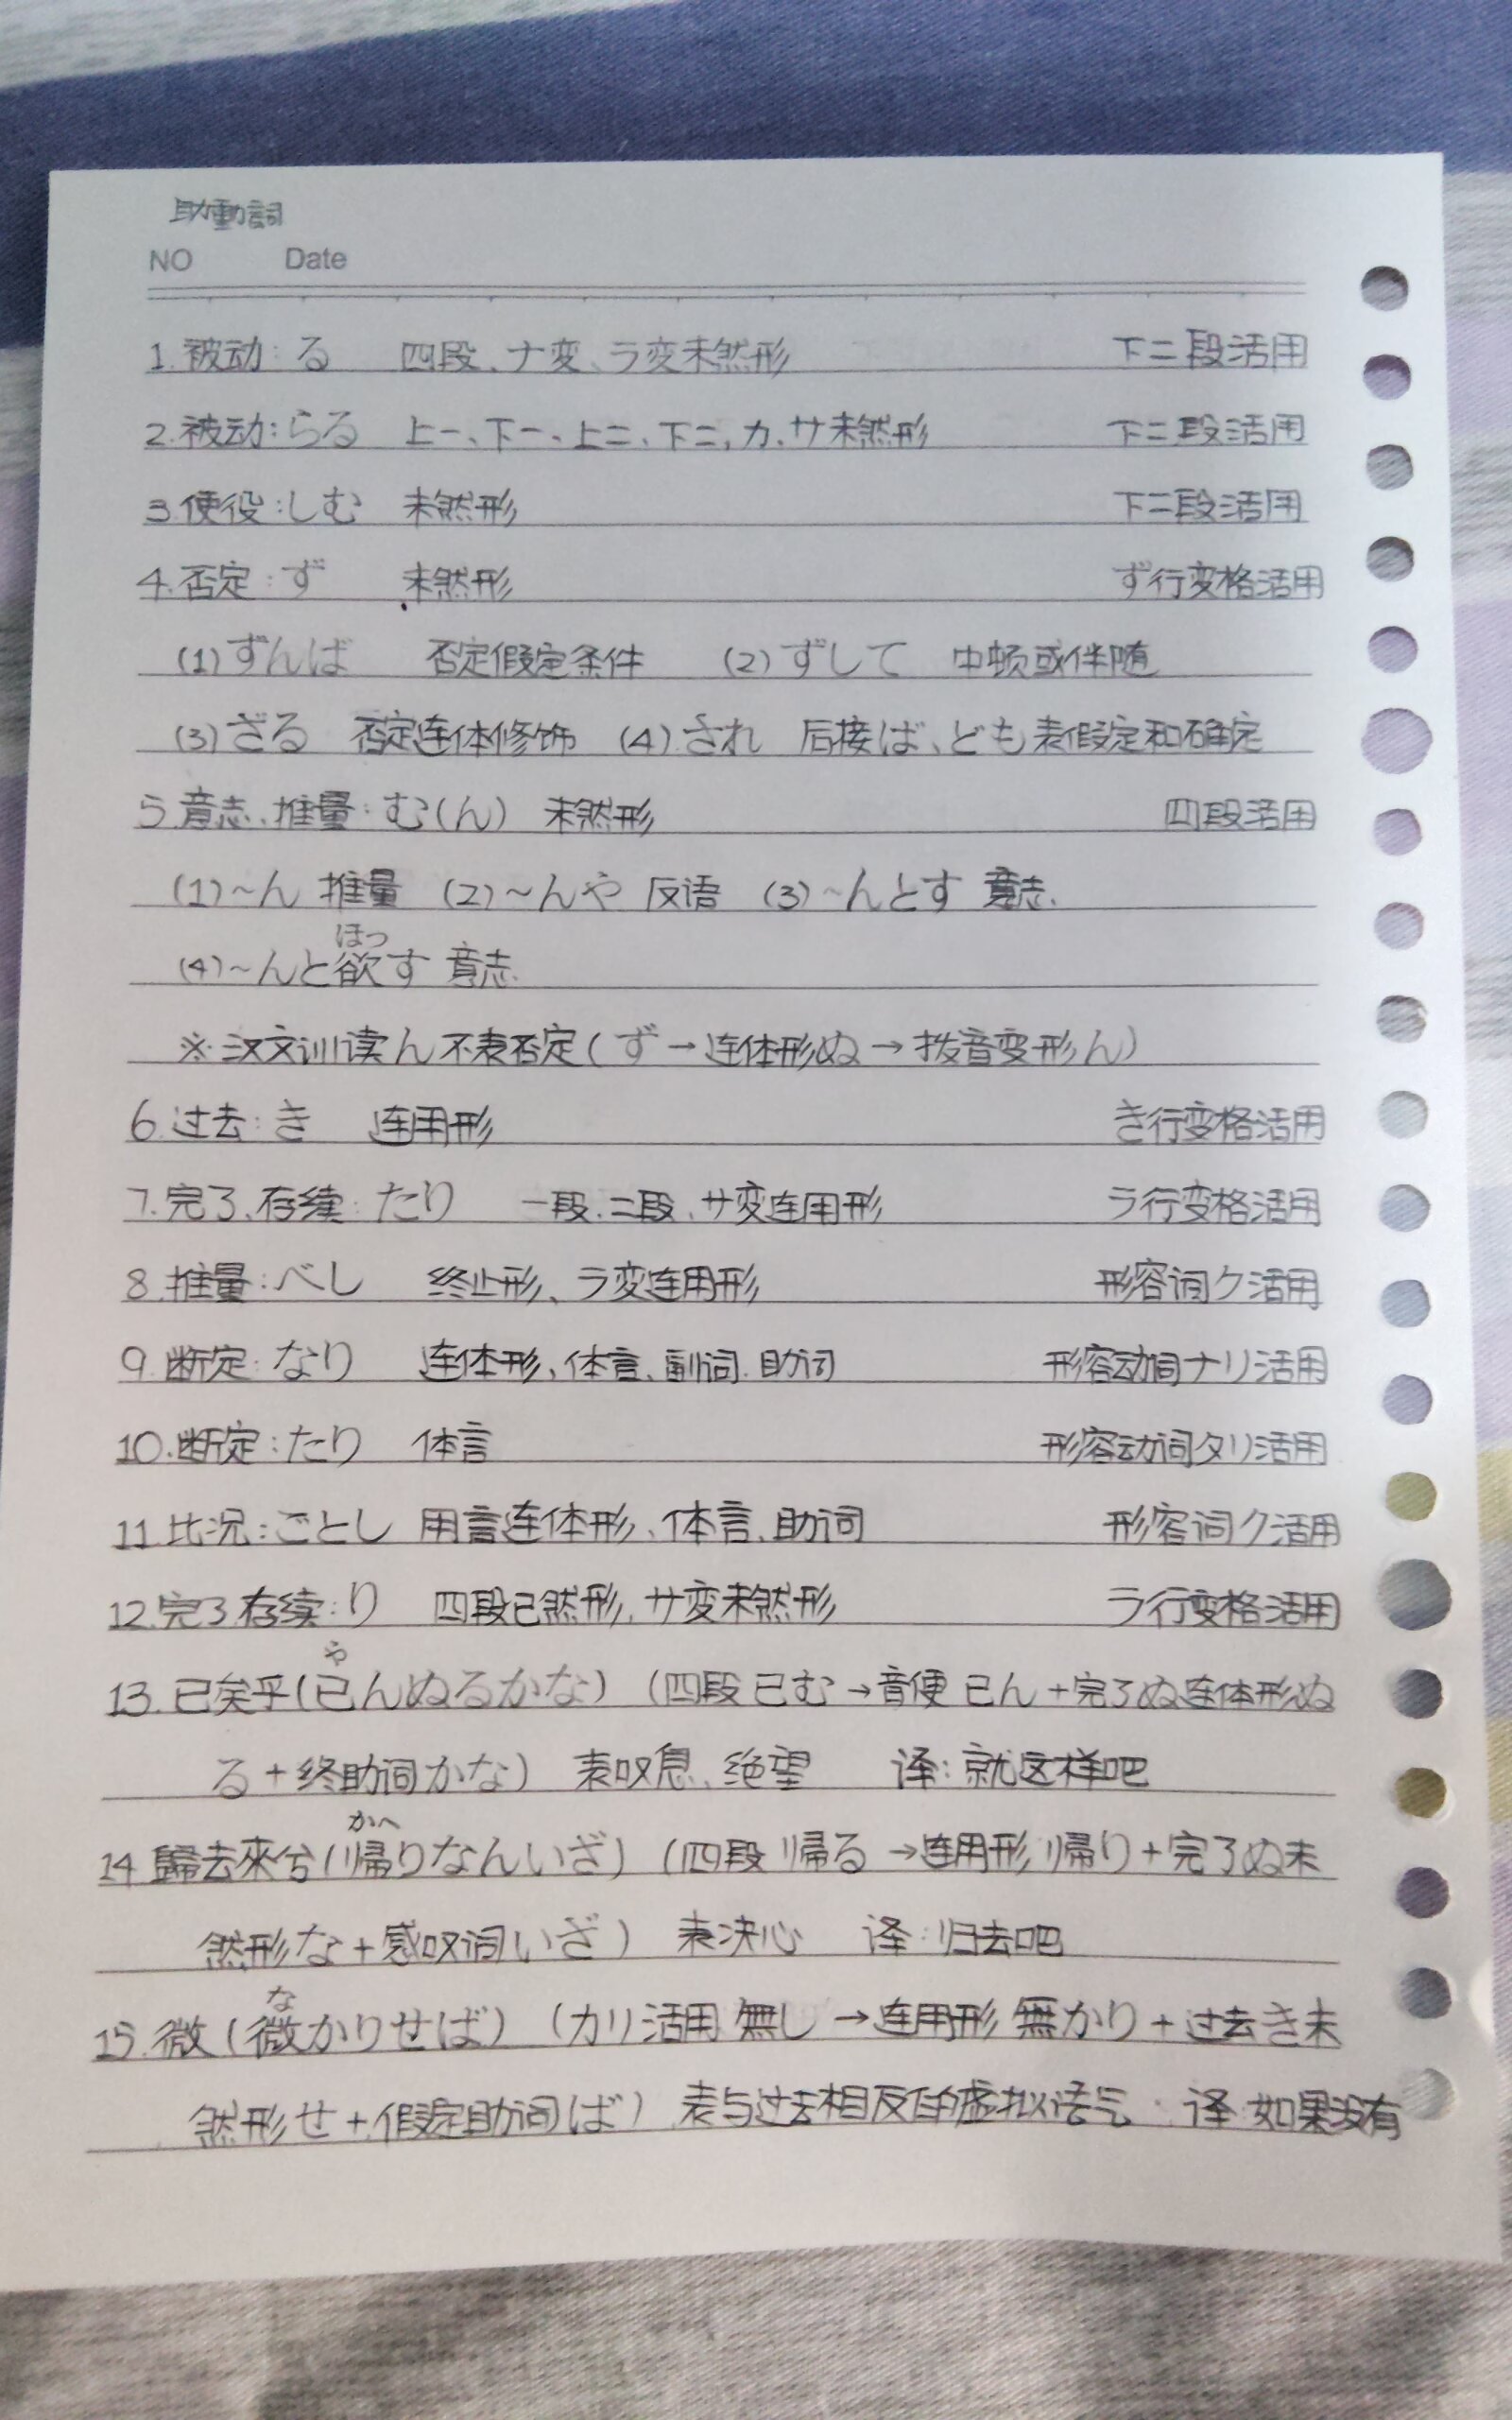 助動詞
NO Date
1.被动：る 四段、ナ変、ラ変未然形 下二段活用
2.被动：らる 上一、下一、上二、下二，カ、サ未然形 下二段活用
3.使役：しむ 未然形 下二段活用
4.否定：ず 未然形 ず行变格活用
(1)ずんば 否定假定条件 (2)ずして 中顿或伴随
(3)ざる 否定连体修饰 (4)され 后接ば、ども表假定和确定
5.意志、推量：む(ん) 未然形 四段活用
(1)~ん 推量 (2)~んや 反语 (3)~んとす 意志.
ほつ
(4)~んと欲す 意志.
※汉文训读ん不表否定(ず→连体形ぬ→拨音变形ん)
6.过去：き 连用形 き行变格活用
7.完了、存续：たり 一段、二段、サ変连用形 ラ行变格活用
8.推量：べし 终止形、ラ変连用形 形容词ク活用
9.断定：なり 连体形、体言、副词.助词 形容动词ナリ活用
10.断定：たり 体言 形容动词タリ活用
11.比况：ごとし 用言连体形、体言、助词 形容词ク活用
12.完了.存续：り 四段已然形，サ変未然形 ラ行变格活用
や
13.已矣乎(已んぬるかな) (四段 已む→音便 已ん+完了ぬ连体形ぬ
る+终助词かな) 表叹息、绝望 译：就这样吧
かへ
14 歸去來兮(帰りなんいざ) (四段 帰る→连用形 帰り+完了ぬ未
然形な+感叹词いざ) 表决心 译：归去吧
な
15.微(微かりせば) (カリ活用 無し→连用形 無かり+过去き未
然形せ+假定助词ば) 表与过去相反的虚拟语气 译：如果没有